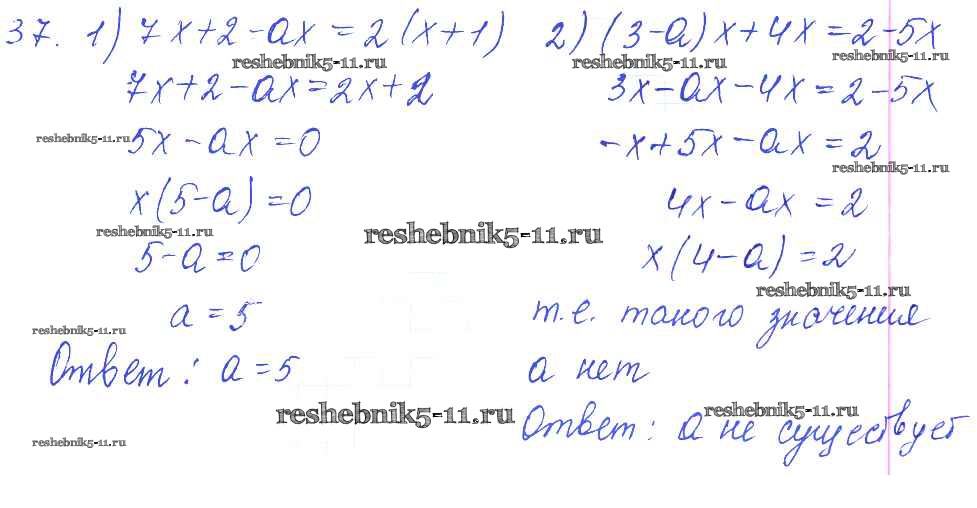 37. 1) 7x+2-ax=2(x+1)
reshebnik5-11.ru
7x+2-ax=2x+2
reshebnik5-11.ru
5x-ax=0
x(5-a)=0
reshebnik5-11.ru
5-a=0
a=5
reshebnik5-11.ru
Ответ: a=5
reshebnik5-11.ru
reshebnik5-11.ru
reshebnik5-11.ru
2) (3-a)x+4x=2-5x
reshebnik5-11.ru
reshebnik5-11.ru
3x-ax-4x=2-5x
-x+5x-ax=2
reshebnik5-11.ru
4x-ax=2
x(4-a)=2
reshebnik5-11.ru
т.е. такого значения
a нет
reshebnik5-11.ru
Ответ: a не существует